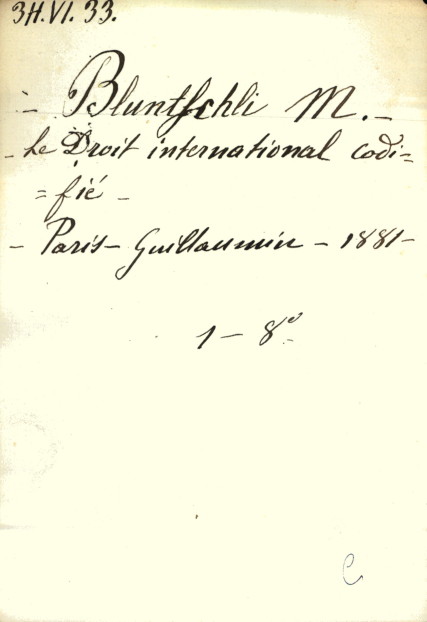 3H.VI.33.
- Bluntschli M. -
- Le Droit international codi=
=fié -
- Paris - Guillaumin - 1881 -
1 - 8º
C